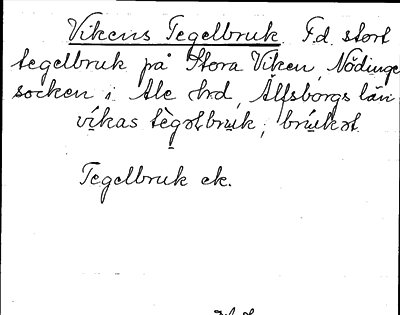 Vikens Tegelbruk F.d. stort
tegelbruk på Stora Viken, Nödinge
socken i Ale hrd, Älfsborgs län
víkas tègəlbru̲k, brúkət.
Tegelbruk ek.